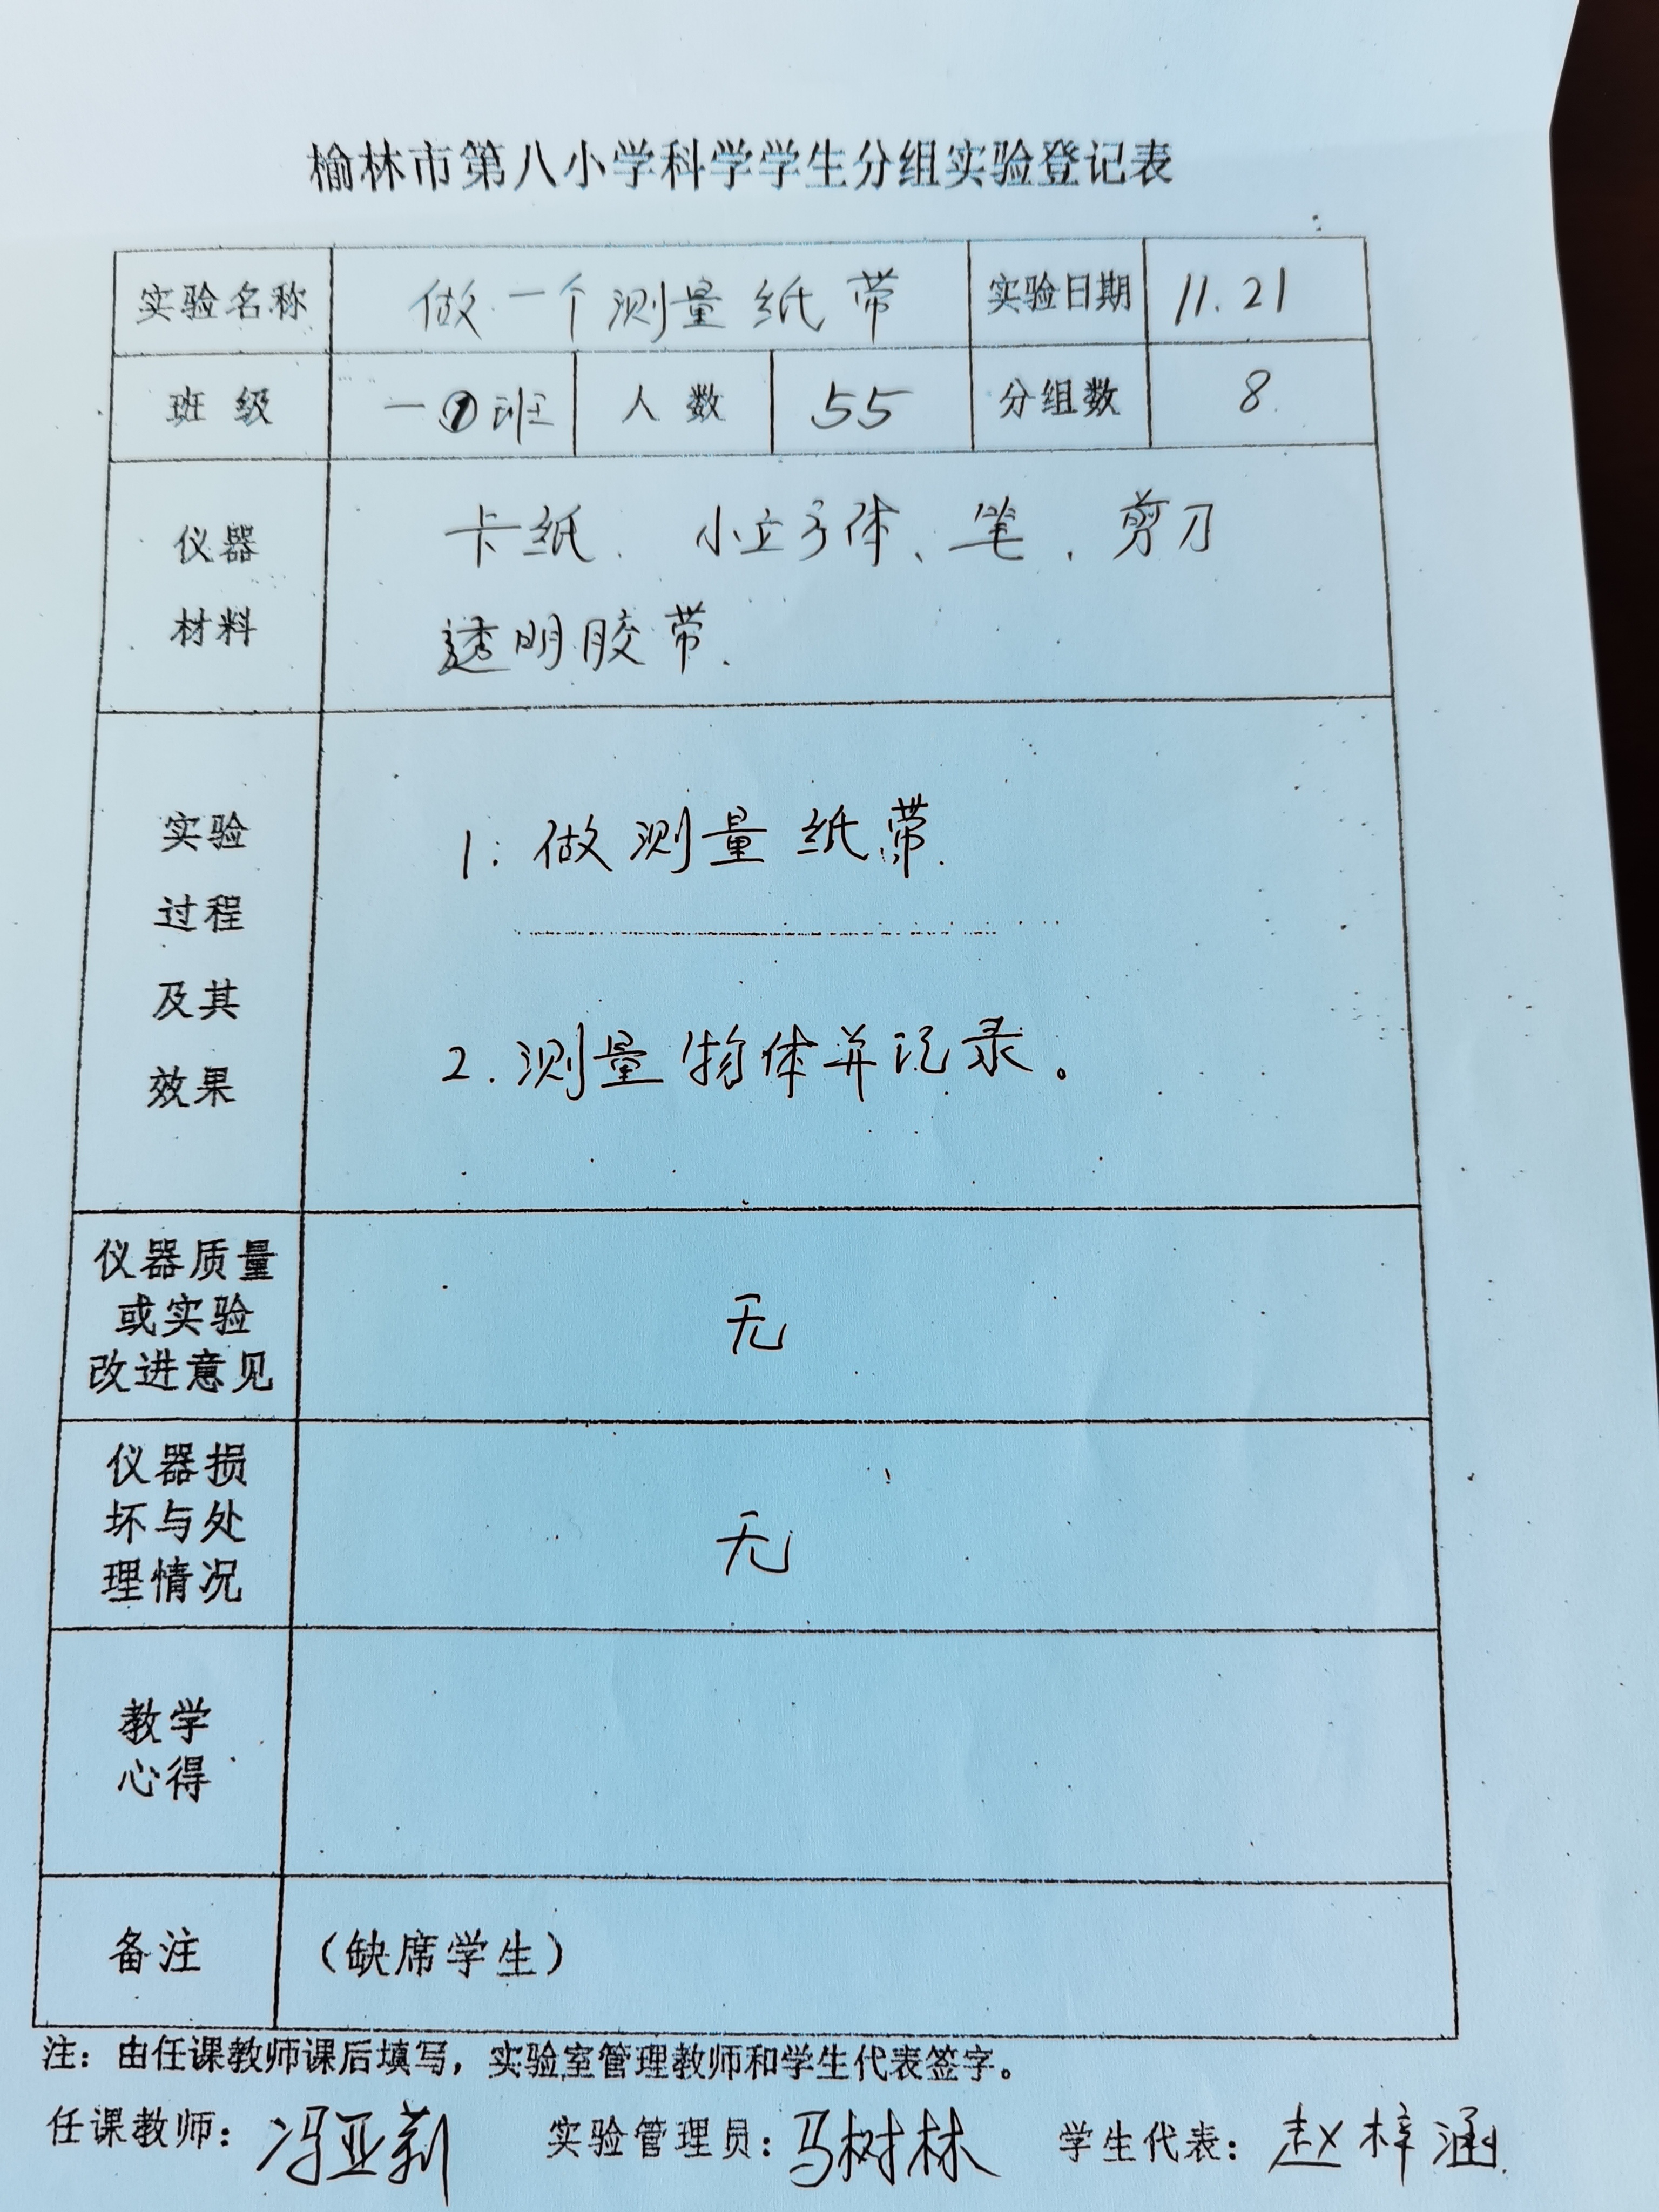 榆林市第八小学科学学生分组实验登记表
实验名称 做一个测量纸带 实验日期 11.21
班级 一①班 人数 55 分组数 8
仪器
材料
卡纙、小立方体、笔、剪刀
透明胶带.
实验
过程
及其
效果
1. 做测量纸带.
2. 测量物体并记录。
仪器质量
或实验
改进意见
无
仪器损
坏与处
理情况
无
教学
心得
备注 (缺席学生)
注：由任课教师课后填写，实验室管理教师和学生代表签字。
任课教师：冯亚莉 实验管理员：马树林 学生代表：赵梓涵